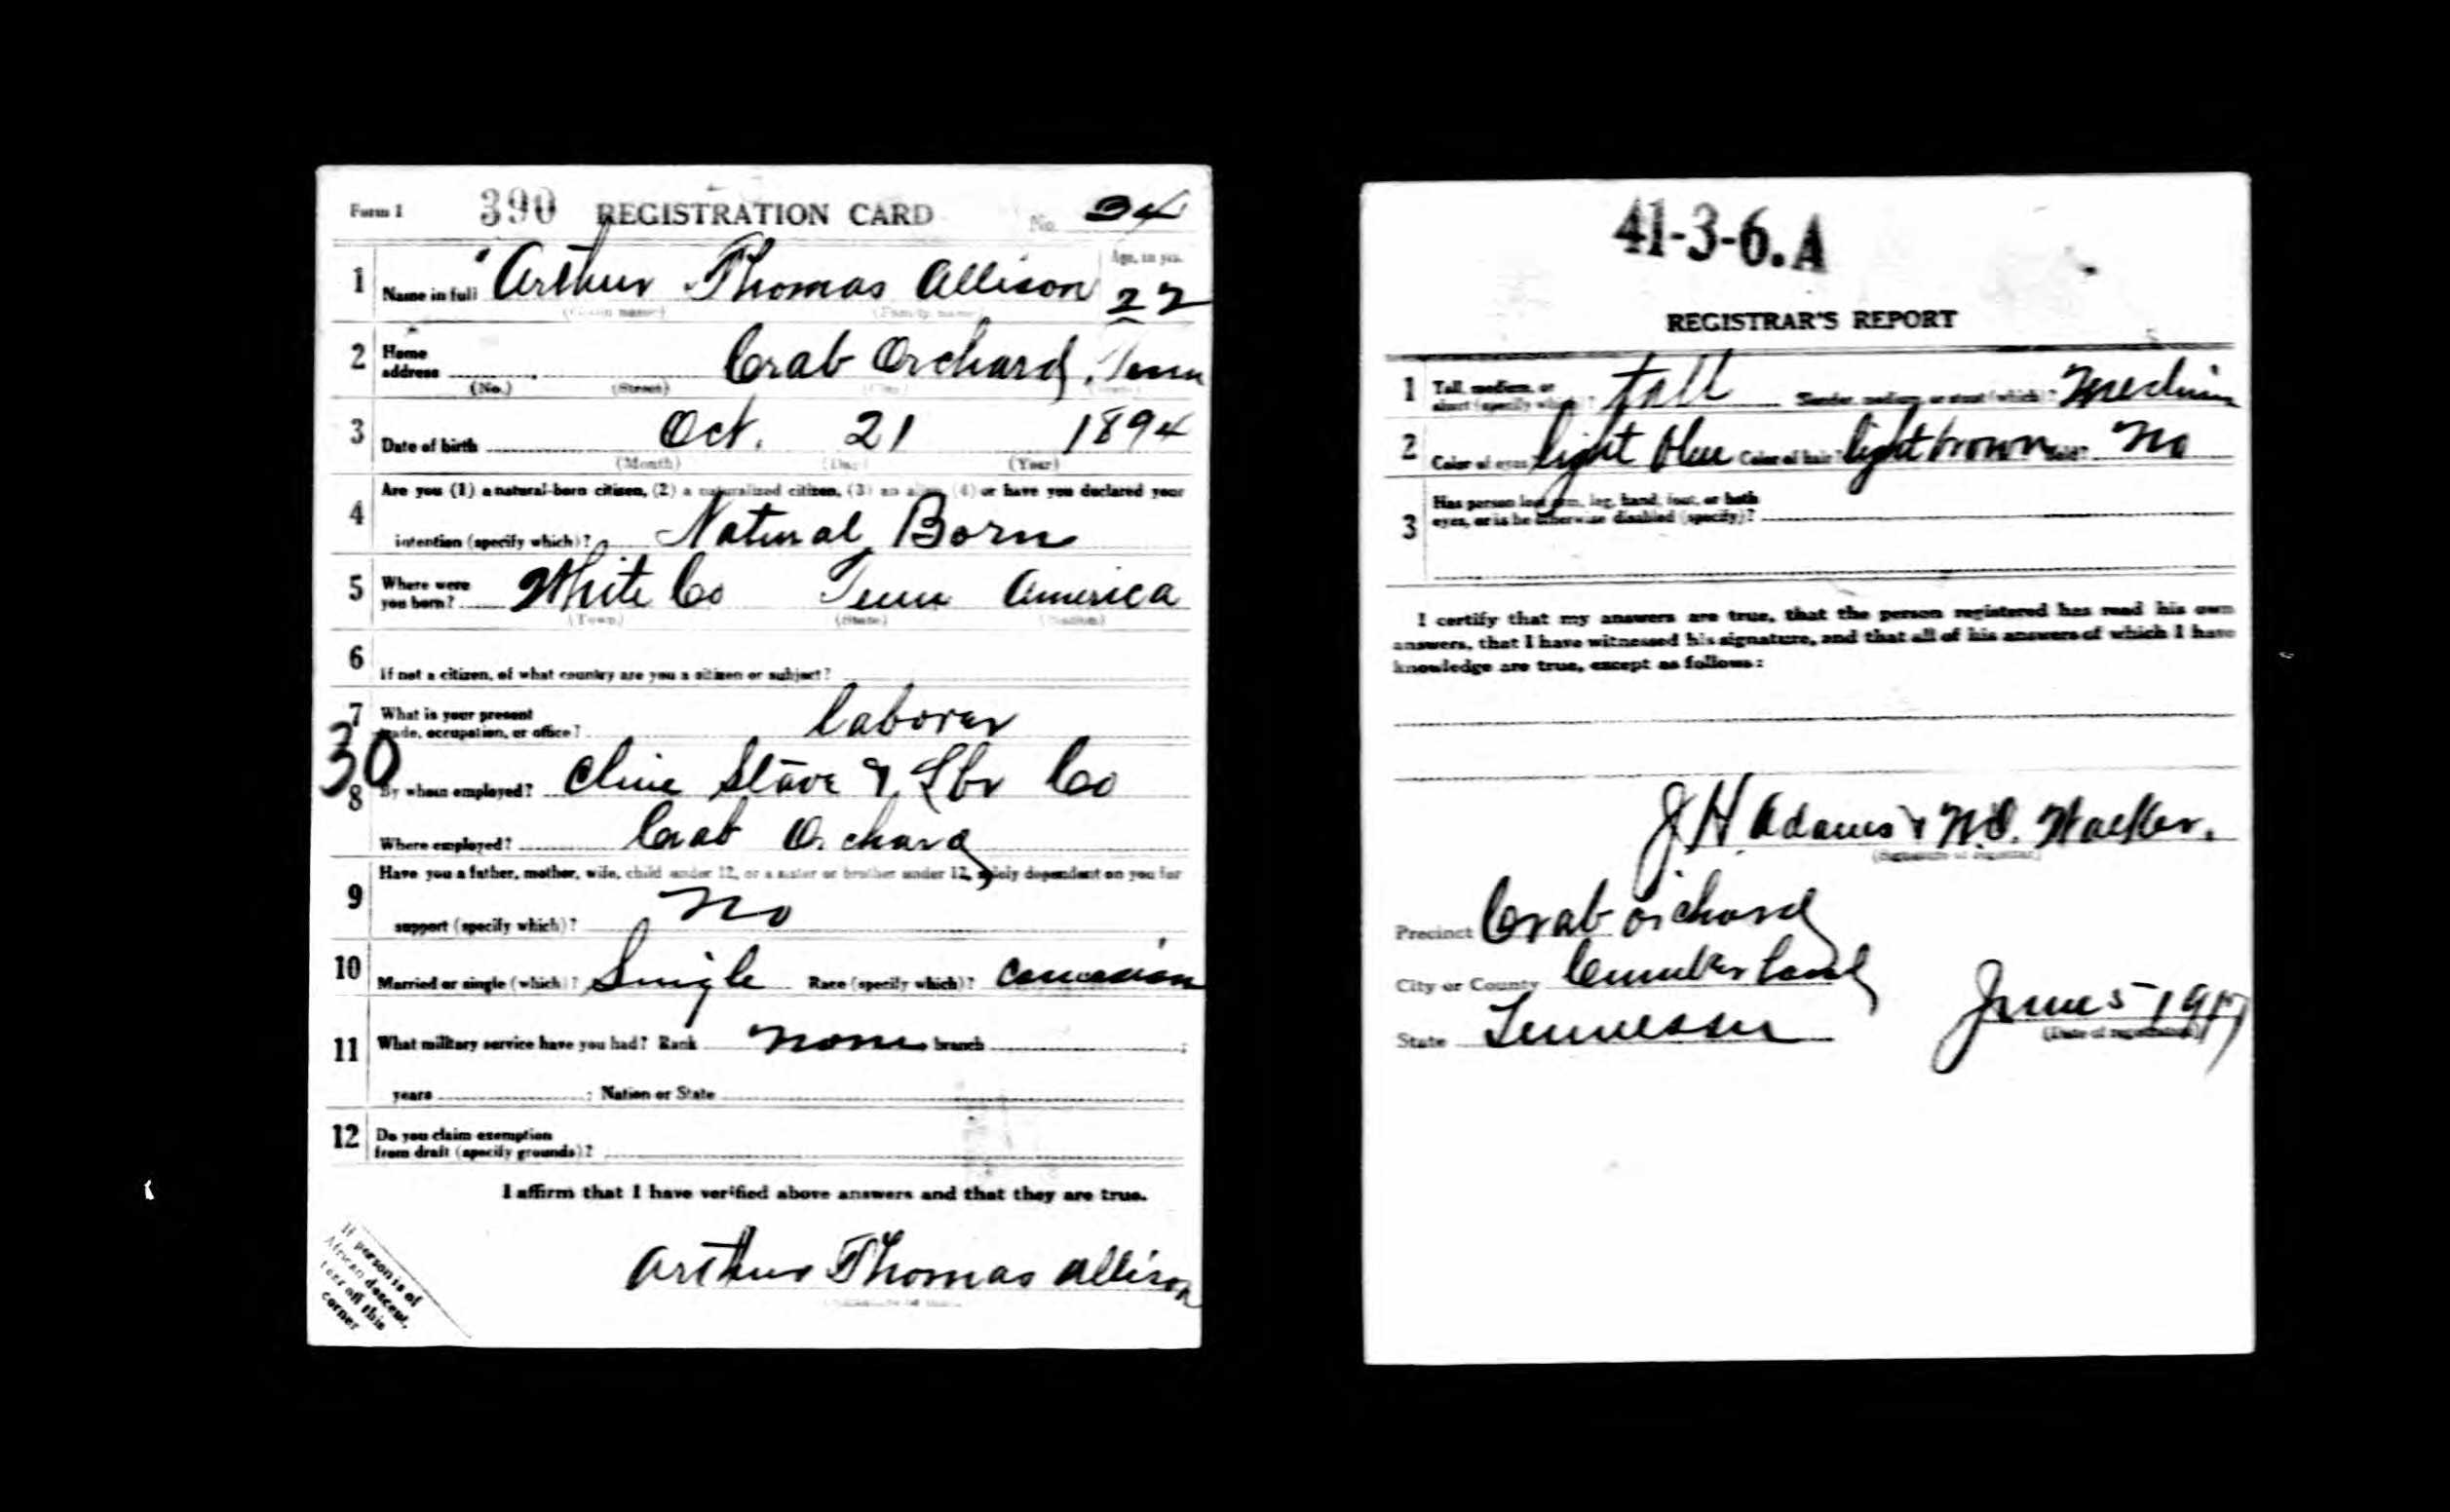 Form 1 390 REGISTRATION CARD No. 34
1 Name in full Arthur Thomas Allison Age, in yrs. 22
(Given name) (Family name)
2 Home address Crab Orchard, Tenn
(No.) (Street) (City) (State)
3 Date of birth Oct. 21 1894
(Month) (Day) (Year)
4 Are you (1) a natural-born citizen, (2) a naturalized citizen, (3) an alien, (4) or have you declared your
intention (specify which)? Natural Born
5 Where were you born? White Co Tenn America
(Town) (State) (Nation)
6 If not a citizen, of what country are you a citizen or subject?
7 What is your present trade, occupation, or office? laborer
30
8 By whom employed? Cline Stave & Lbr Co
Where employed? Crab Orchard
9 Have you a father, mother, wife, child under 12, or a sister or brother under 12, solely dependent on you for
support (specify which)? no
10 Married or single (which)? Single Race (specify which)? Caucasian
11 What military service have you had? Rank none branch ;
years ; Nation or State
12 Do you claim exemption
from draft (specify grounds)?
I affirm that I have verified above answers and that they are true.
Arthur Thomas Allison
If person is of
African descent,
tear off this
corner
41-3-6.A
REGISTRAR'S REPORT
1 Tall, medium, or short (specify which)? tall Slender, medium, or stout (which)? Medium
2 Color of eyes light blue Color of hair? light brown Bald? No
3 Has person lost arm, leg, hand, foot, or both
eyes, or is he otherwise disabled (specify)?
I certify that my answers are true, that the person registered has read his own
answers, that I have witnessed his signature, and that all of his answers of which I have
knowledge are true, except as follows:
J H Adams & Walker.
(Signature of registrar)
Precinct Crab Orchard
City or County Cumberland
State Tennessee June 5 1917
(Date of registration)